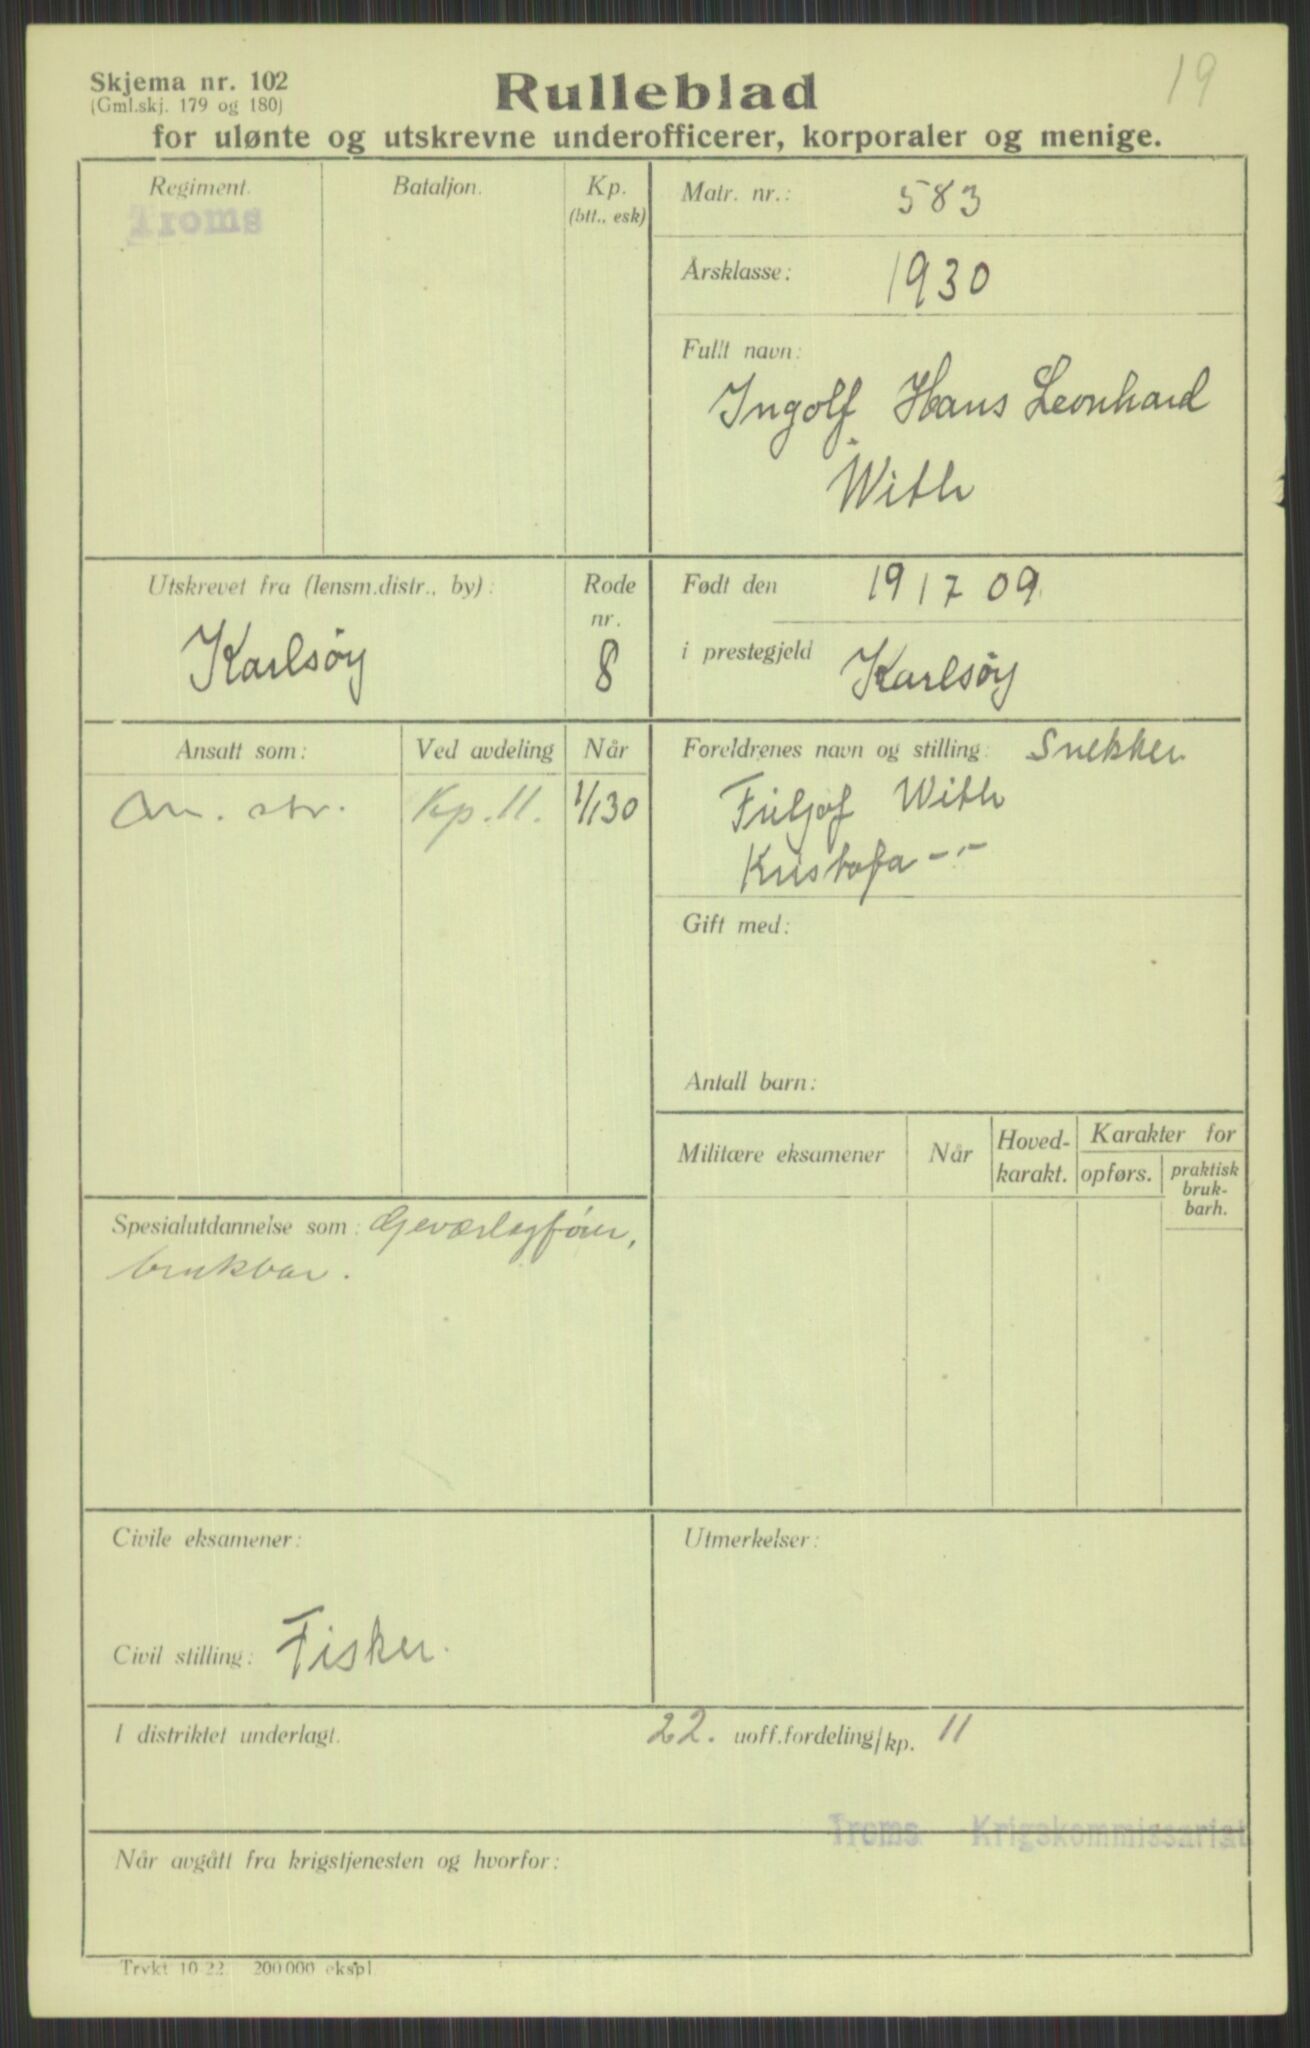 19
Skjema nr. 102
(Gml.skj. 179 og 180)
Rulleblad
for ulønte og utskrevne underofficerer, korporaler og menige.
Regiment.
Troms
Bataljon.
Kp.
(btt., esk)
Matr. nr.: 583
Årsklasse: 1930
Fullt navn:
Ingolf Hans Leonhard
With
Utskrevet fra (lensm.distr., by):
Karlsöy
Rode
nr.
8
Født den 19 1 7 09
i prestegjeld Karlsöy
Ansatt som: Ved avdeling Når
str. Kp. 11. 1/1 30
Foreldrenes navn og stilling: Snekker
With
Kristofa - " -
Gift med:
Antall barn:
Militære eksamener
Når
Hoved-
karakt.
Karakter for
opførs.
praktisk
bruk-
barh.
Spesialutdannelse som: Geværlagförer,
brukbar.
Civile eksamener:
Civil stilling: Fisker.
Utmerkelser:
I distriktet underlagt. 22. uoff.fordeling/kp. 11
Troms Krigskommissariat
Når avgått fra krigstjenesten og hvorfor:
Trykt 10 22 200 000 ekspl